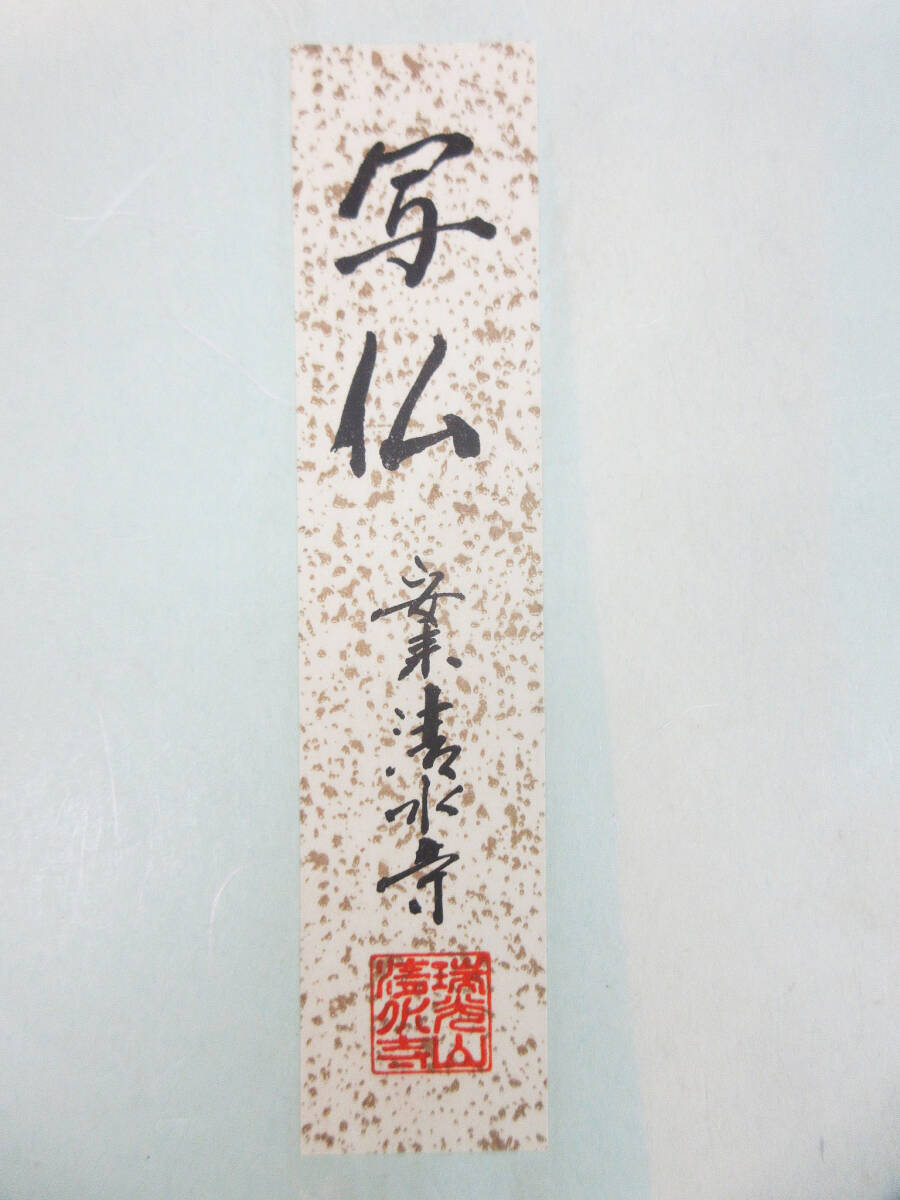 写仏
安来清水寺
瑞光山
清水寺